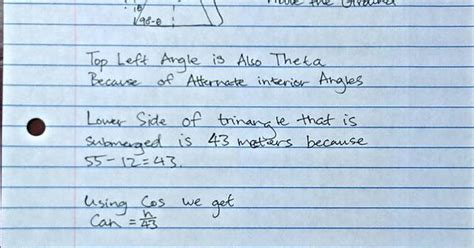 90-θ
the Ground
Top Left Angle is Also Theta
Because of Alternate interior Angles
Lower Side of trinangle that is
submerged is 43 meters because
55-12=43.
Using Cos we get
Can = h/43